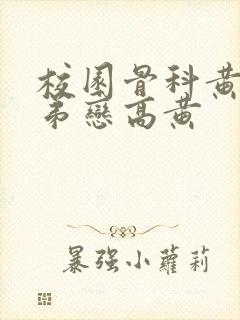 校園骨科黃
弟戀高黃
暴强小蘿莉